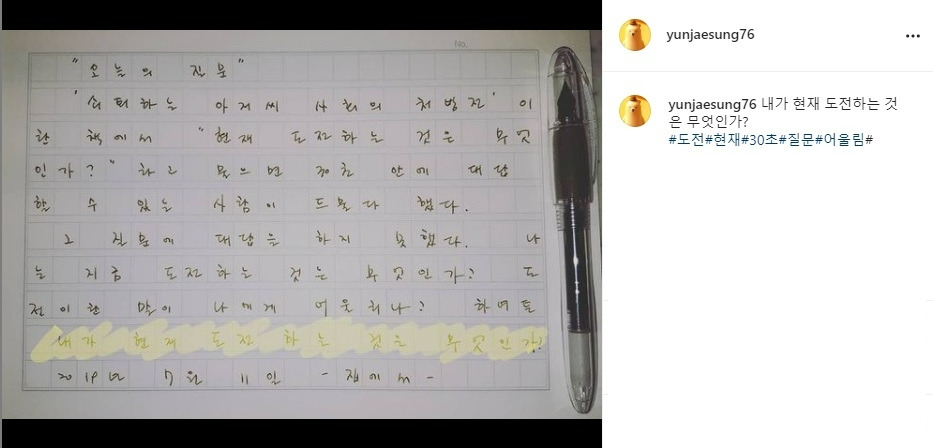 No.
"오늘의 질문"
'쇠퇴하는 아저씨 사회의 처방전' 이
란 책에서 "현재 도전하는 것은 무엇
인가?" 하고 물으면 30초 안에 대답
할 수 있는 사람이 드물다 했다.
그 질문에 대답을 하지 못했다. 나
는 지금 도전하는 것은 무엇인가? 도
전이란 말이 나에게 어울리나? 하여튼
내가 현재 도전하는 것은 무엇인가!
2019년 7월 11일 - 집에서 -
yunjaesung76
yunjaesung76 내가 현재 도전하는 것
은 무엇인가?
#도전#현재#30초#질문#어울림#